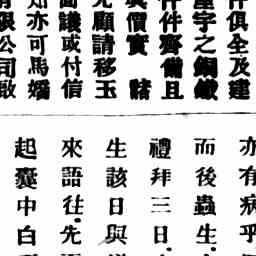 件俱全及建
屋宇之鋼鐵
件件齊備且
價實 諸
光顧請移玉
面議或付信
知亦可馬孻
有限公司啟
亦有病乎
而後蟲生
禮拜三日
生該日與
來語往先
起囊中白